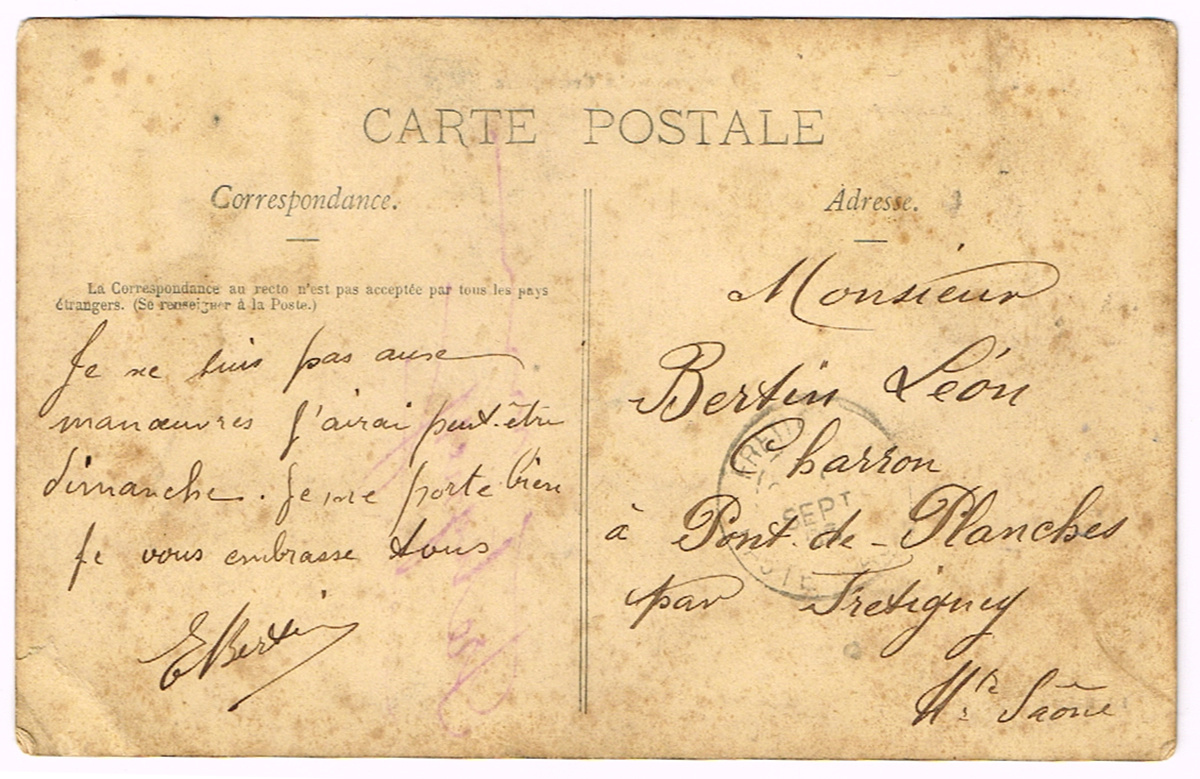 CARTE POSTALE
Correspondance.
La Correspondance au recto n'est pas acceptée par tous les pays
étrangers. (Se renseigner à la Poste.)
Je ne suis pas aux
manœuvres J'airai peut-être
dimanche. Je me porte bien
Je vous embrasse tous
E Bertin
Adresse.
Monsieur
Bertin Léon
Charron
à Pont-de-Planches
par Fretigney
Hte Saône
SEPT